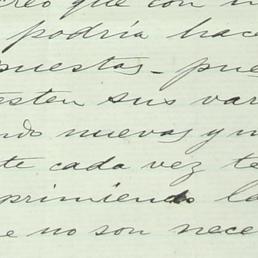 creo que con
podría hace
puestas - pue
esten sus var
ndo nuevas y
te cada vez te
primiendo la
e no son nece